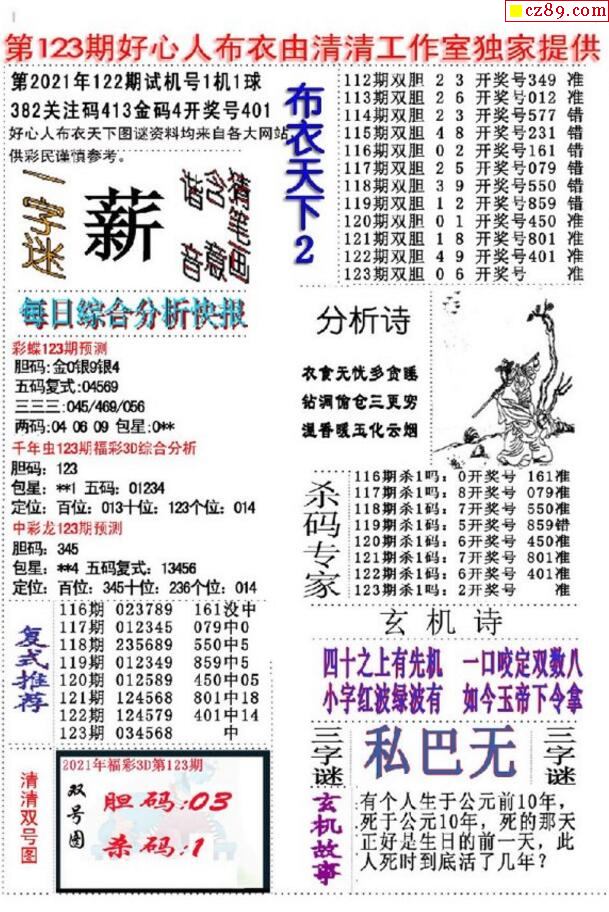 cz89.com
第123期好心人布衣由清清工作室独家提供
第2021年122期试机号1机1球
382关注码413金码4开奖号401
好心人布衣天下图谜资料均来自各大网站,
供彩民谨慎参考。
一字迷
薪
谐音
含意
猜笔画
每日综合分析快报
彩蝶123期预测
胆码:金0银9银4
五码复式:04569
三三三:045/469/056
两码:04 06 09 包星:0**
千年虫123期福彩3D综合分析
胆码: 123
包星: **1 五码: 01234
定位: 百位: 013十位: 123个位: 014
中彩龙123期预测
胆码: 345
包星: **4 五码复式: 13456
定位: 百位: 345十位: 236个位: 014
复式推荐
116期 023789 161没中
117期 012345 079中0
118期 235689 550中5
119期 012349 859中5
120期 012589 450中05
121期 124568 801中18
122期 124579 401中14
123期 034568 中
清清双号图
2021年福彩3D第123期
双号图
胆码:03
杀码:1
布衣天下2
112期双胆 2 3 开奖号349 准
113期双胆 2 6 开奖号012 准
114期双胆 2 3 开奖号577 错
115期双胆 4 8 开奖号231 错
116期双胆 0 2 开奖号161 错
117期双胆 2 5 开奖号079 错
118期双胆 3 9 开奖号550 错
119期双胆 1 2 开奖号859 错
120期双胆 0 1 开奖号450 准
121期双胆 1 8 开奖号801 准
122期双胆 4 9 开奖号401 准
123期双胆 0 6 开奖号 准
分析诗
衣食无忧多贪睡
钻洞偷仓三更穷
温香暖玉化云烟
杀码专家
116期杀1吗: 0开奖号 161准
117期杀1吗: 8开奖号 079准
118期杀1码: 7开奖号 550准
119期杀1码: 5开奖号 859错
120期杀1码: 6开奖号 450准
121期杀1码: 7开奖号 801准
122期杀1码: 6开奖号 401准
123期杀1码: 2开奖号 准
玄机诗
四十之上有先机 一口咬定双数八
小字红波绿波有 如今玉帝下令拿
三字谜
私巴无
三字谜
玄机故事
有个人生于公元前10年,
死于公元10年，死的那天
正好是生日的前一天，此
人死时到底活了几年?